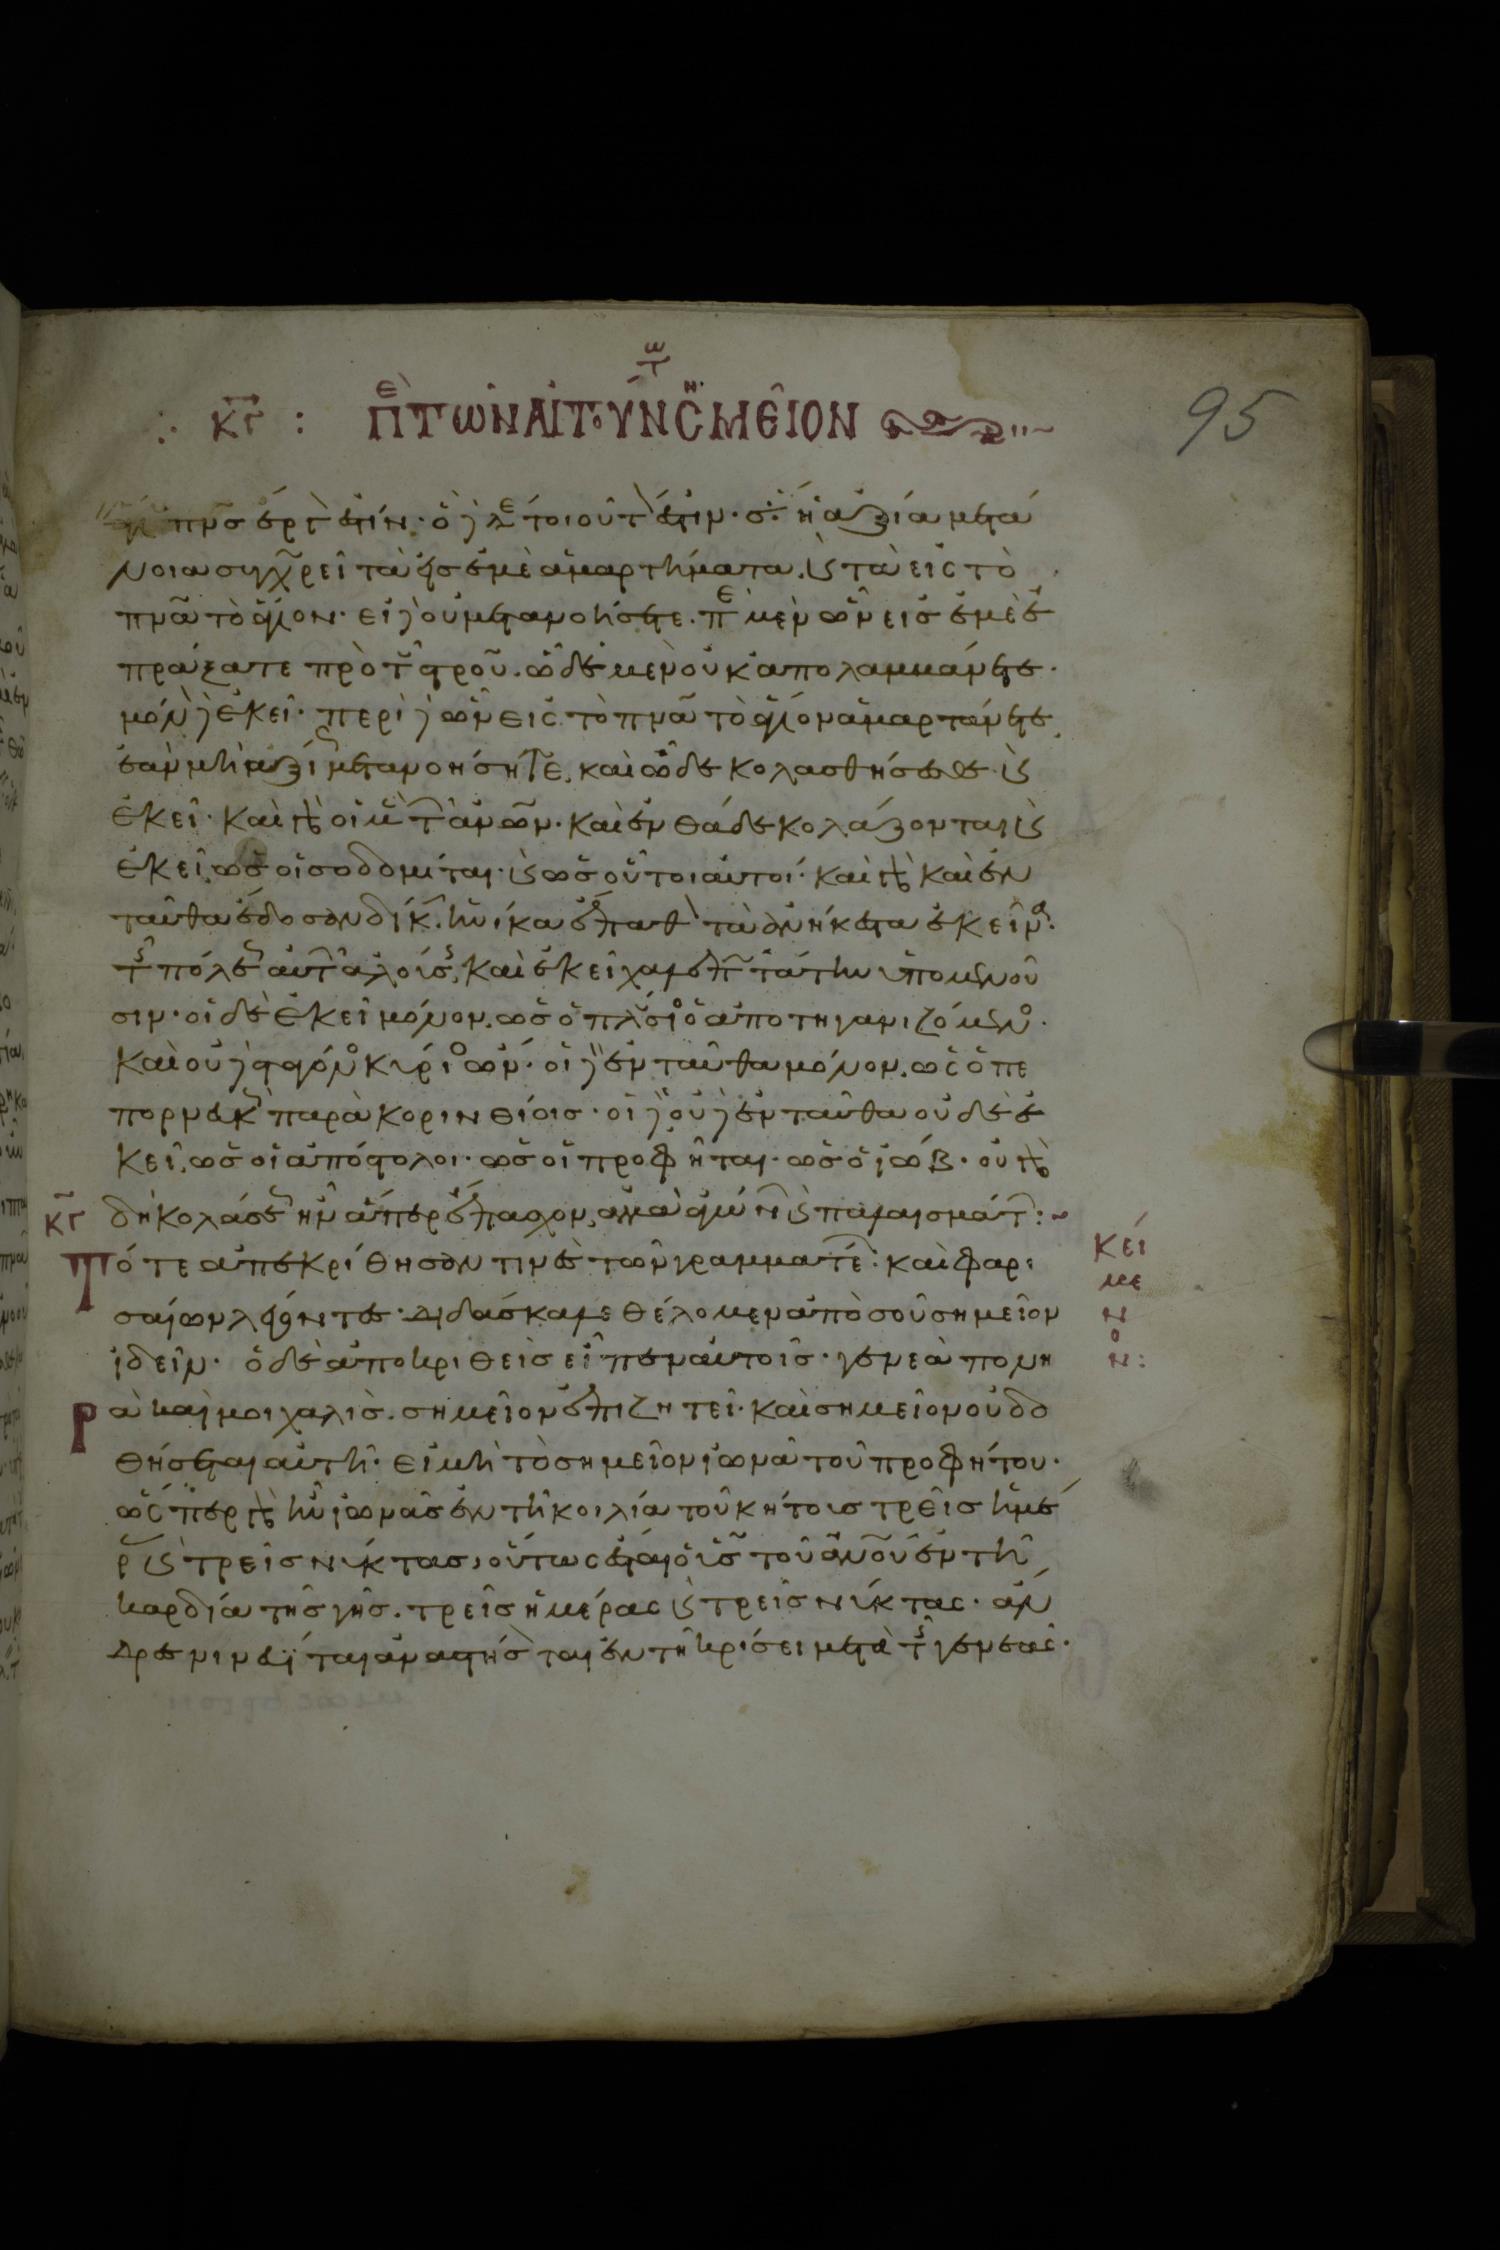 ∴ κγ : ΠΕ ΤΩΝ ΑΙΤΟΥΝΤΩ ΣΗΜΕΙΟΝ
95
πνς ἐστιν· ὃ λε τοιοῦτ ἐστιν· ὅτι ἡ ἀξία μετά
νοια συγχωρεῖ τὰ εἰς ἐμὲ ἁμαρτήματα. καὶ τὰ εἰς τὸ
πνᾶ τὸ ἅγιον· εἰ δὲ οὐ μετανοήσετε. πε μὲν ὧν εἰς ἐμὲ ἐ
πράξατε πρὸ τοῦ στροῦ. ὧδε μὲν οὐκ ἀπολαμβάνετε·
μόνον δὲ ἐκεῖ· περὶ δὲ ὧν εἰς τὸ πνᾶ τὸ ἅγιον ἁμαρτάνετε
ἐὰν μὴ ἀξίως μετανοήσητε, καὶ ὧδε κολασθήσεσθε· καὶ
ἐκεῖ· καὶ γὰρ οἱ μὲν τῶν ἀνων· καὶ ἐνθάδε κολάζονται καὶ
ἐκεῖ, ὡς οἱ σοδομίται· καὶ ὡς οὗτοι αὐτοί· καὶ γὰρ καὶ ἐν
ταῦθα ἔδοσαν δίκην. ἡνίκα ἔπαθον τὰ ἀνήκεστα ἐκεῖνα
τῆς πόλεως αὐτῶν ἁλούσης, καὶ ἐκεῖ χαλεπωτάτην ὑπομενοῦ
σιν· οἱ δὲ ἐκεῖ μόνον. ὡς ὁ πλούσιος ὁ ἀποτηγανιζόμενος·
καὶ οὐ δὲ σταγόνος κύριος ὤν· οἱ δὲ ἐνταῦθα μόνον. ὡς ὁ πε
πορνευκὼς παρὰ κορινθίοις· οἱ δὲ οὐδὲ ἐνταῦθα οὐδὲ ἐ
κεῖ, ὡς οἱ ἀπόστολοι· ὡς οἱ προφῆται· ὡς ὁ ἰώβ· οὐ γὰρ
κγ δὴ κολάσεως ἦν ἅπερ ἔπασχον, ἀλλὰ ἀγώνων καὶ παλαισμάτων :
Τότε ἀπεκρίθησάν τινες τῶν γραμματέων· καὶ φαρι
σαίων λέγοντες· διδάσκαλε θέλομεν ἀπὸ σοῦ σημεῖον
ἰδεῖν· ὁ δὲ ἀποκριθεὶς εἶπεν αὐτοῖς· γενεὰ πονη
ρὰ καὶ μοιχαλίς. σημεῖον ἐπιζητεῖ· καὶ σημεῖον οὐ δο
θήσεται αὐτῆ· εἰ μὴ τὸ σημεῖον ἰωνᾶ τοῦ προφήτου·
ὥσπερ γὰρ ἦν ἰωνᾶς ἐν τῆ κοιλία τοῦ κήτους τρεῖς ἡμέ
ρας καὶ τρεῖς νύκτας, οὕτως ἔσται ὁ υἱς τοῦ ἀνοῦ ἐν τῆ
καρδία τῆς γῆς. τρεῖς ἡμέρας καὶ τρεῖς νύκτας· ἄν
δρες νινευῗται ἀναστήσονται ἐν τῆ κρίσει μετὰ τῆς γενεᾶς·
κεί
με
ν
ο
ν: